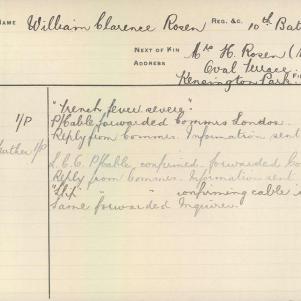 NAME William Clarence Rosen REG. &C. 10th Bat
NEXT OF KIN Mrs H. Rosen (M
ADDRESS Oval Terrace
Kensington Park
"Trench fever severe".
1/P P/Cable forwarded Commrs London.
Reply from Commrs. Information sent
Further 1/P L.C.C. P/Cable confirmed. forwarded
Reply from Commrs. Information sent
"Slip" " " confirming cable
Same forwarded Inquirer.